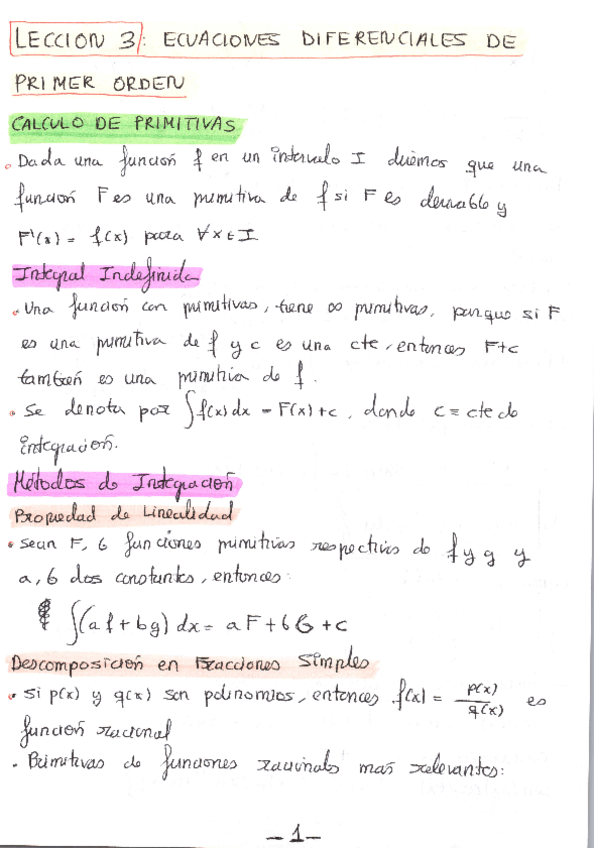 LECCION 3: ECUACIONES DIFERENCIALES DE
PRIMER ORDEN
CALCULO DE PRIMITIVAS
• Dada una función f en un intervalo I diremos que una
función F es una primitiva de f si F es derivable y
F'(x) = f(x) para ∀x∈I
Integral Indefinida
• Una función con primitivas, tiene ∞ primitivas, porque si F
es una primitiva de f y c es una cte, entonces F+c
también es una primitiva de f.
• Se denota por ∫f(x)dx = F(x)+c, donde c = cte de
integración.
Métodos de Integración
Propiedad de Linealidad
• Sean F, G funciones primitivas respectivas de f y g y
a, b dos constantes, entonces:
∫(af + bg) dx = aF + bG + c
Descomposición en Fracciones Simples
• Si p(x) y q(x) son polinomios, entonces f(x) = p(x)/q(x) es
función racional
• Primitivas de funciones racionales mas relevantes:
-1-